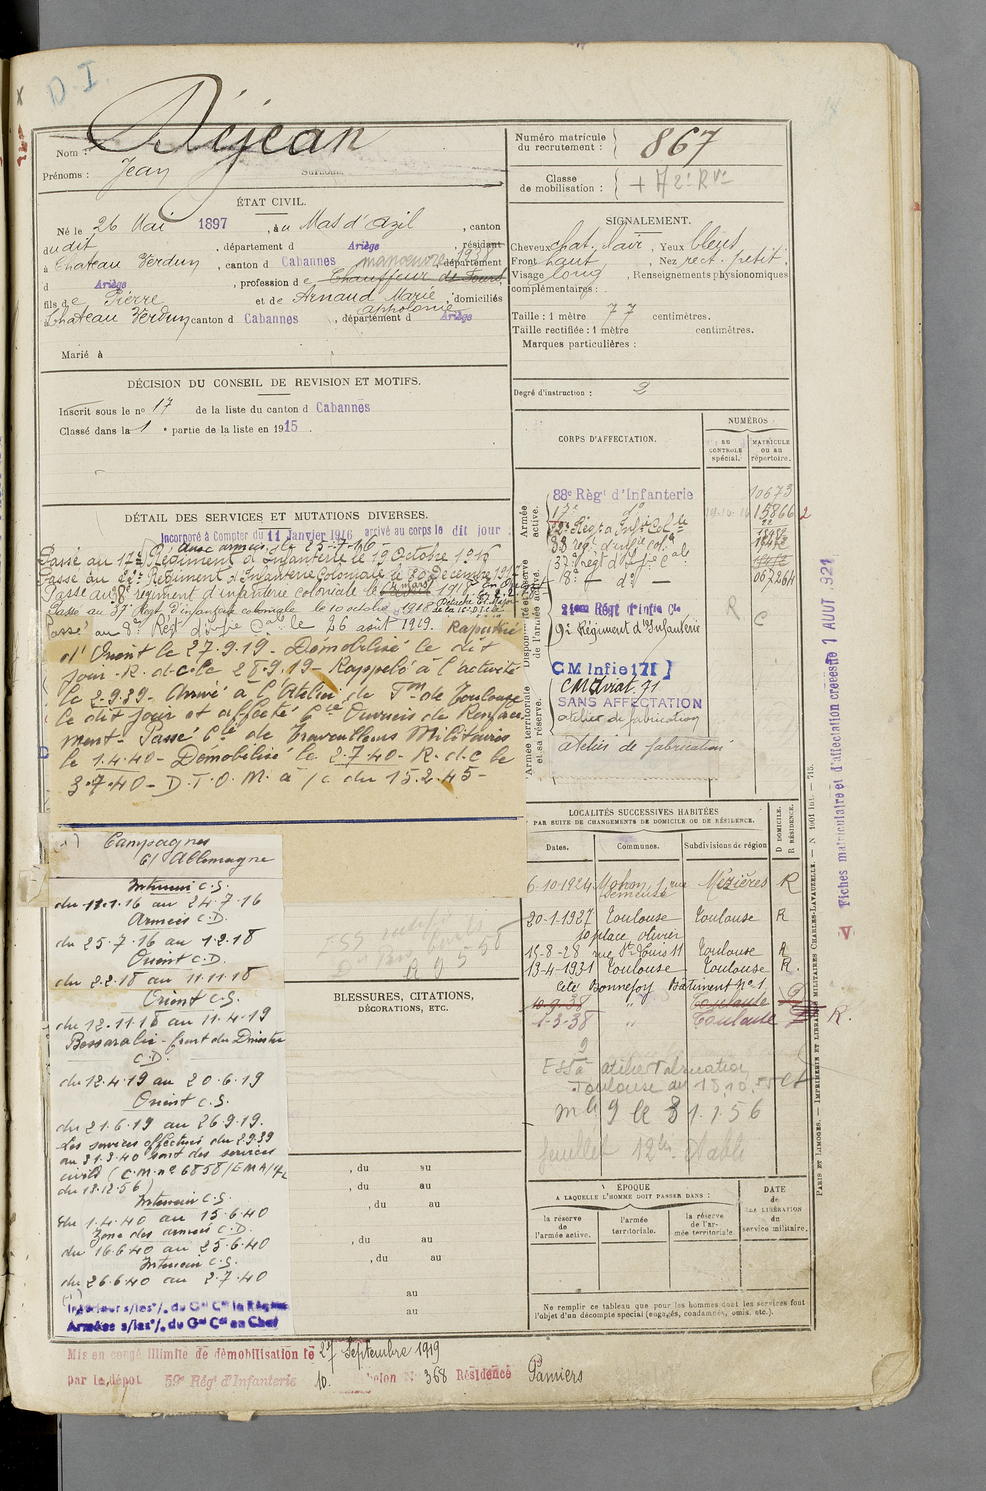 D.I.
Nom : Déjean
Prénoms : Jean Surnom
Numéro matricule du recrutement : 867
Classe de mobilisation :
ÉTAT CIVIL.
Né le 26 Mai 1897, à u Mas d'azil, canton
du dit, département d Ariège, résidant
à Chateau Verdun, canton d Cabannes manoeuvre 1938 département
d Ariège, profession de Chauffeur de Fours,
fils de Pierre et de Arnaud Marie appolonie, domiciliés
à Chateau Verdun canton d Cabannes, département d Ariège
Marié à
SIGNALEMENT.
Cheveux chat. clair, Yeux bleus
Front haut, Nez rect. petit.
Visage long, Renseignements physionomiques
complémentaires :
Taille : 1 mètre 77 centimètres.
Taille rectifiée : 1 mètre centimètres.
Marques particulières :
Degré d'instruction : 2
DÉCISION DU CONSEIL DE REVISION ET MOTIFS.
Inscrit sous le no 17 de la liste du canton d Cabannes
Classé dans la 1e partie de la liste en 1915.
DÉTAIL DES SERVICES ET MUTATIONS DIVERSES.
Incorporé à Compter du 11 Janvier 1916 arrivé au corps le dit jour
Aux armées le 25-7-16
Passé au 17e Régiment d'Infanterie le 19 Octobre 1916
Passé au 22e Régiment d'Infanterie Coloniale le 30 Décembre 191
Passé au 38e régiment d'infanterie coloniale le 1918
Passé au 37e Régt d'infanterie coloniale le 10 octobre 1918
Passé au 8e Régt d'Infie Cale le 26 août 1919. Rapatrié
d'Orient le 27.9.19 - Démobilisé le dit
jour - R.d.c. le 28.9.19 - Rappelé à l'activité
le 2.9.39 - Arrivé à l'Atelier de Ton de Toulouse
le dit jour et affecté Cie Ouvriers de Renforcement - Passé Cie de Travailleurs Militaires
le 1.4.40 - Démobilisé le 2.7.40 - R.d.c le
3.7.40 - D.T.O.M. à /c du 15.2.45 -
CORPS D'AFFECTATION.
NUMÉROS
AU CONTROLE spécial.
MATRICULE OU AU répertoire.
Armée active.
Disponibilité et réserve de l'armée active.
Armée territoriale et sa réserve.
88e Régt d'Infanterie 10673
17e do 15866
22e Régt d'Inf. Cole
38 régt d'infie cole
37e régt d'Inf. Cale
8e do
21ème Régt d'Infie Cle
9e Régiment d'Infanterie
CM Infie 171
CM aviat. 71
SANS AFFECTATION
atelier de fabrication
atelier de fabrication
Fiches matriculaire et d'affectation créées le 1 AOUT 1921
Campagnes
C/ Allemagne
Intérieur C.S.
du 11.1.16 au 24.7.16
Armées C.D.
du 25.7.16 au 1.2.18
Orient C.D.
du 2.2.18 au 11.11.18
Orient C.S.
du 12.11.18 au 11.4.19
Bessarabie - front du Dniester
C.D.
du 12.4.19 au 20.6.19
Orient C.S.
du 21.6.19 au 26.9.19.
Les services effectués du 2.9.39
au 31.3.40 sont des services
civils (C.M. no 6858/EMA/
du 18.12.56)
Intérieur C.S.
du 1.4.40 au 15.6.40
Zone des armées C.D.
du 16.6.40 au 25.6.40
Intérieur C.S.
du 26.6.40 au 2.7.40
BLESSURES, CITATIONS,
DÉCORATIONS, ETC.
, du au
, du au
, du au
, du au
, du au
au
au
LOCALITÉS SUCCESSIVES HABITÉES
PAR SUITE DE CHANGEMENTS DE DOMICILE OU DE RÉSIDENCE.
Dates. Communes. Subdivisions de région D DOMICILE. R RÉSIDENCE.
6-10-1924 Mohon, 1, rue Demeuse Mézières R
20-1-1927 Toulouse Toulouse R
10 place olivier
15-8-28 rue St Louis 11 Toulouse R
13-4-1931 Toulouse Toulouse R.
Cité Bonnefoy Bâtiment No 1
10-9-38 " Toulouse
1-3-38 " Toulouse R.
atelier Fabrication
Toulouse
le 31.1.56
feuillet 12
ÉPOQUE
A LAQUELLE L'HOMME DOIT PASSER DANS :
la réserve de l'armée active.
l'armée territoriale.
la réserve de l'armée territoriale
DATE de la LIBÉRATION du service militaire.
Ne remplir ce tableau que pour les hommes dont les services font
l'objet d'un décompte spécial (engagés, condamnés, omis, etc.).
PARIS ET LIMOGES. — IMPRIMERIE ET LIBRAIRIE MILITAIRES CHARLES-LAVAUZELLE. — N 1001 Int. — 715.
Intérieur s/les o/. du Gal Ct la Région
Armées s/les o/. du Gal Ct en Chef
Mis en congé illimité de démobilisation le 27 Septembre 1919
par le dépôt 59e Régt d'Infanterie 10. helon No 368 Résidence Pamiers